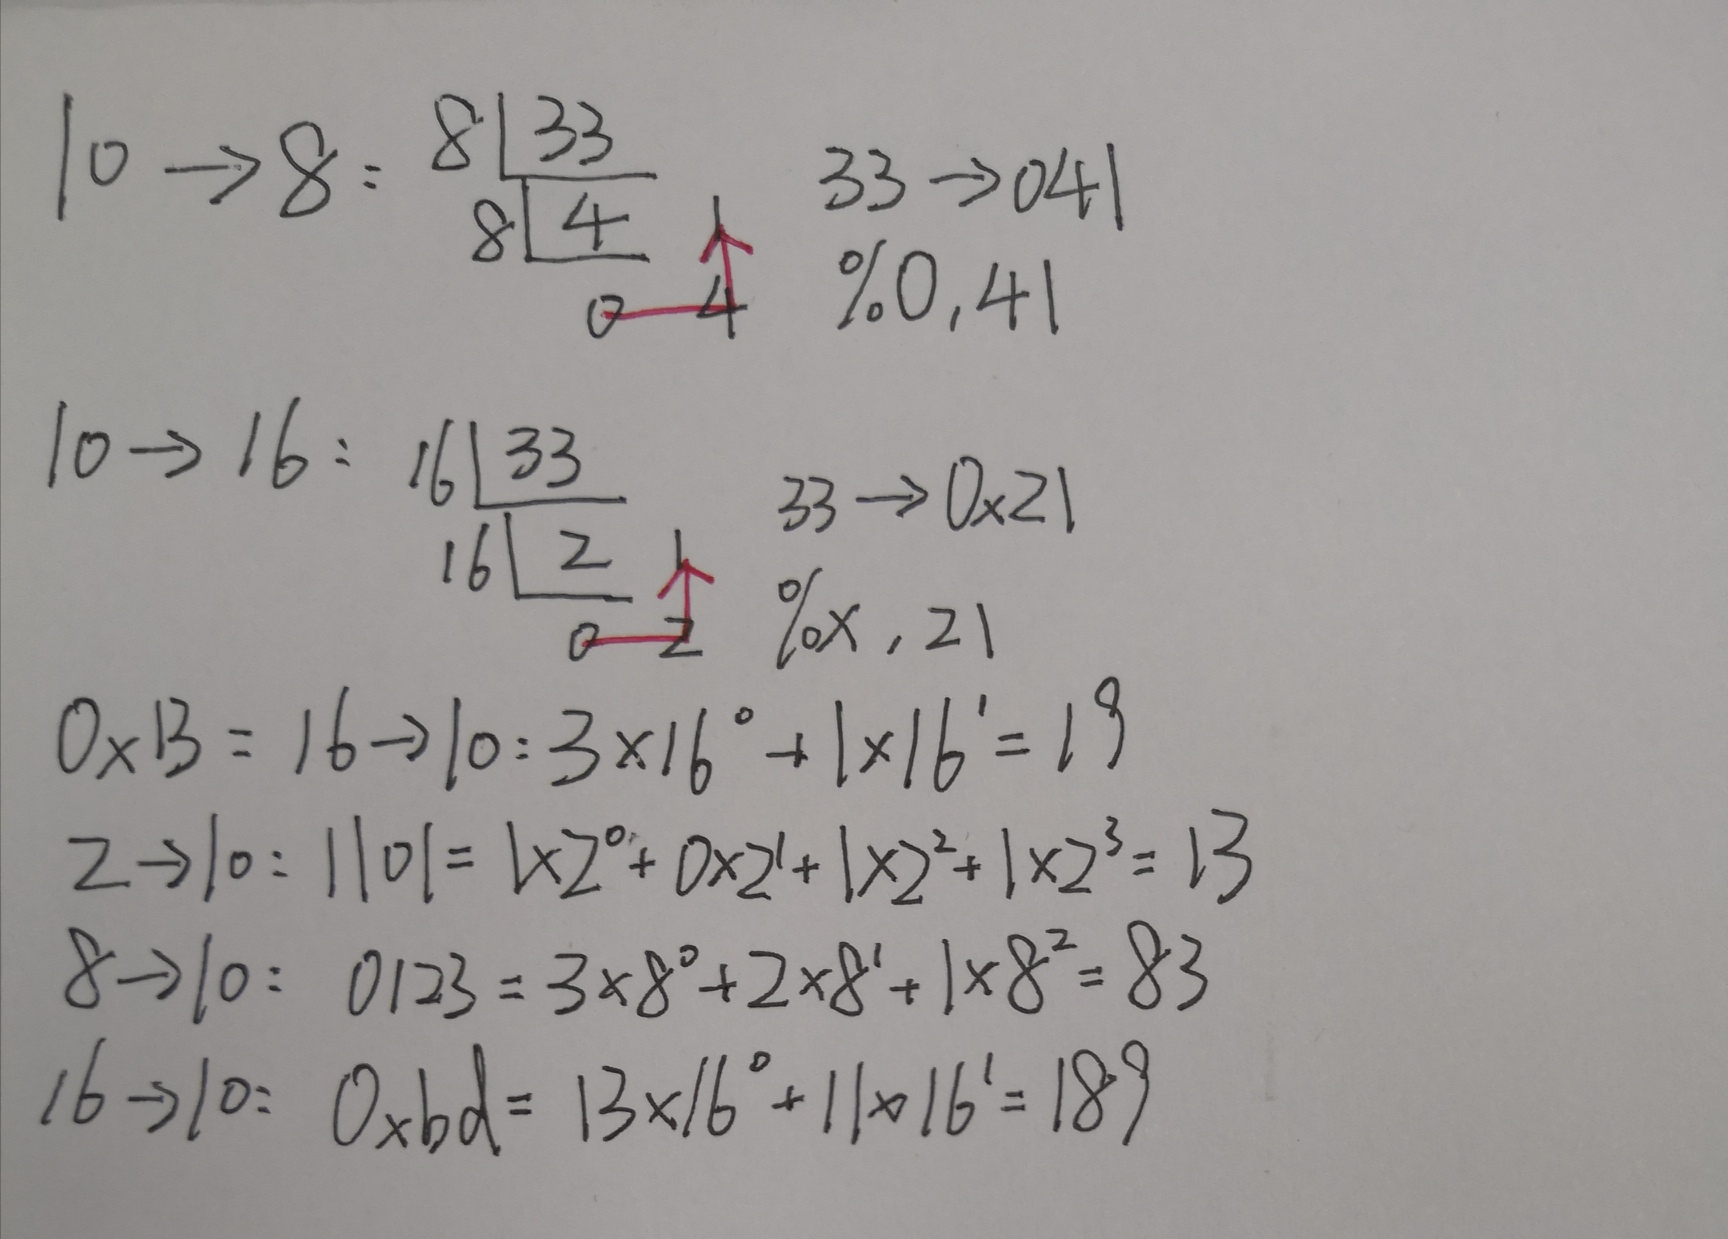 10→8: 8|33
8|4 1
0 4
33→041
%0,41
10→16: 16|33
16|2 1
0 2
33→0x21
%x,21
0x13=16→10:3×16⁰+1×16¹=19
2→10:1101=1×2⁰+0×2¹+1×2²+1×2³=13
8→10: 0123=3×8⁰+2×8¹+1×8²=83
16→10: 0xbd=13×16⁰+11×16¹=189